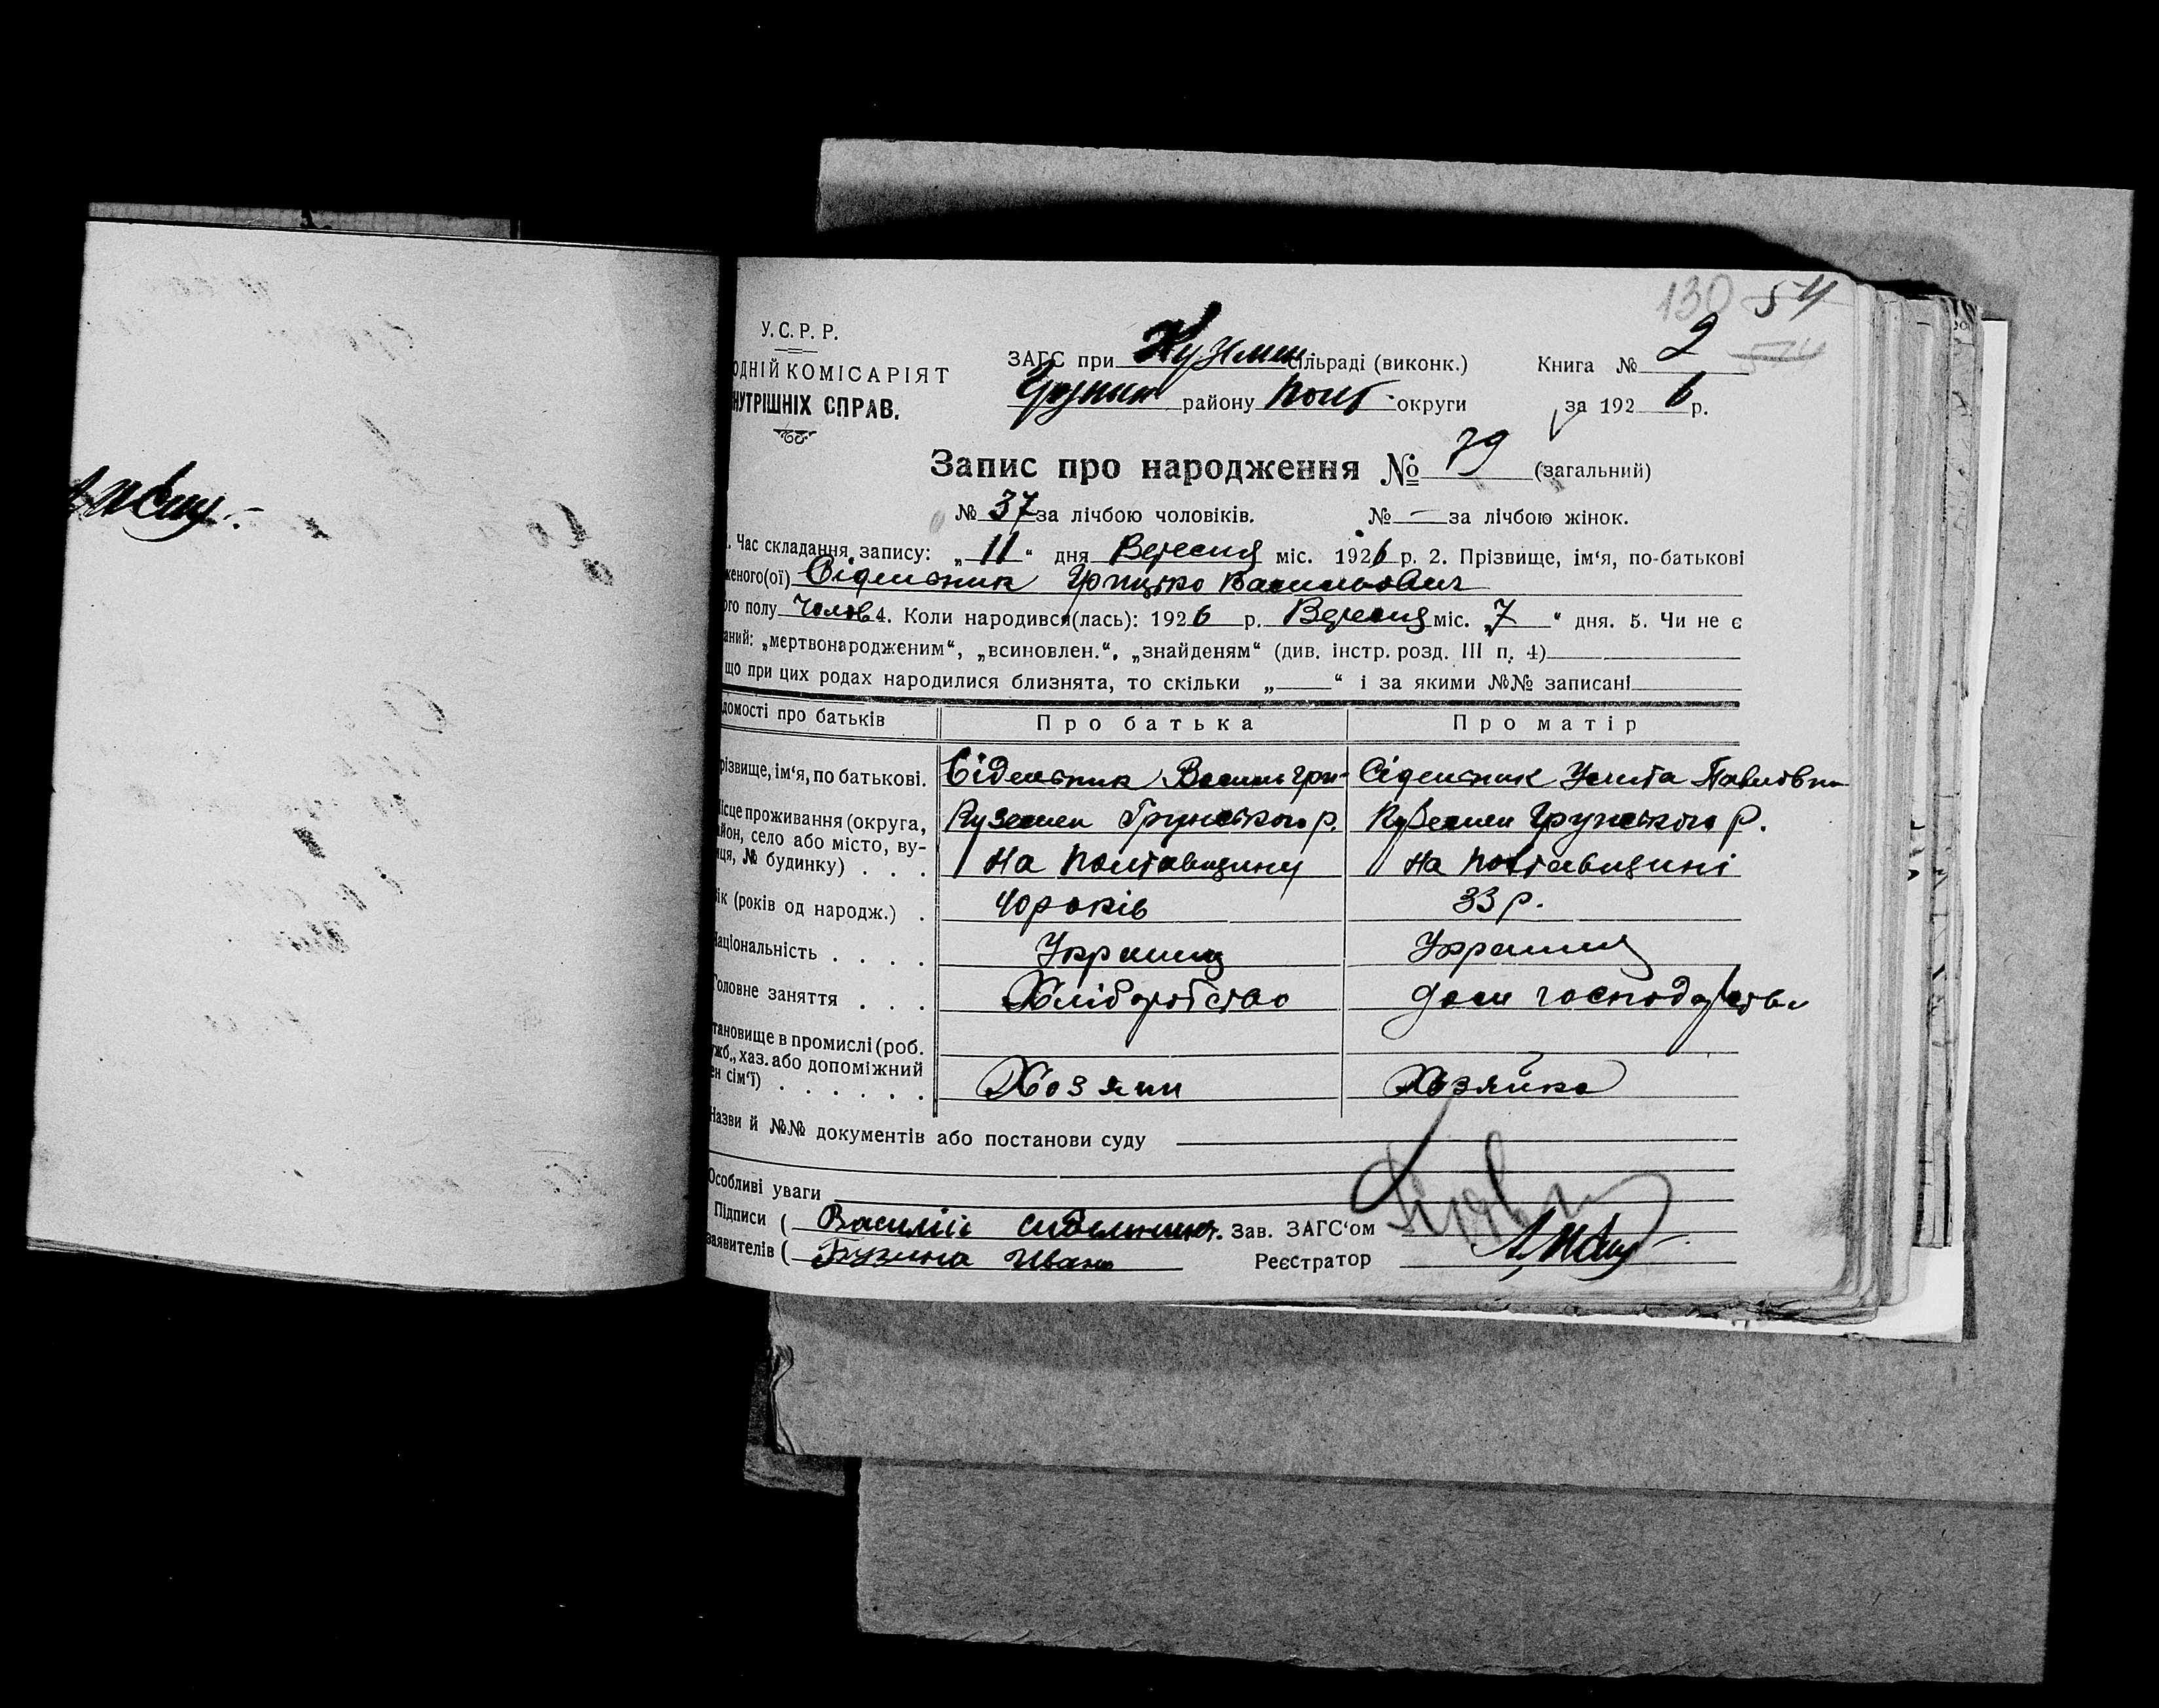 130 54
У.С.Р.Р.
ОДНІЙ КОМІСАРІЯТ
НУТРІШНІХ СПРАВ.
ЗАГС при Кузмен сільраді (виконк.)
Грунськ району Полт. округи
Книга № 2
54
за 1926 р.
Запис про народження № 79 (загальний)
№ 37 за лічбою чоловіків. № — за лічбою жінок.
. Час складання запису: „11“ дня Вересня міс. 1926 р. 2. Прізвище, ім'я, по-батькові
женого(ої) Сідельник Грицько Васильович
ого полу Чолов 4. Коли народився(лась): 1926 р. Вересня міс. „7“ дня. 5. Чи не є
аний: „мертвонародженим“, „всиновлен.“, „знайденям“ (див. інстр. розд. III п. 4)
що при цих родах народилися близнята, то скільки „ “ і за якими №№ записані
домості про батьків Про батька Про матір
різвище, ім'я, по батькові. Сідельник Василь Гри- Сідельник Улита Павловна
ісце проживання (округа, Куземен Грунського р. Куземен Грунського р.
йон, село або місто, ву-
иця, № будинку) . . . На Полтавщину на Полтавщині
ік (років од народж.) . 40 років 33 р.
аціональність . . . . Украинц Украинц
Головне заняття . . . Хліборобство дом господарства
тановище в промислі (роб.
ужб., хаз. або допоміжний
ен сім'ї) . . . . . . Хозяин Хозяйка
Назви й №№ документів або постанови суду
Особливі уваги
Підписи ( Василій Сиделник. Зав. ЗАГС'ом
заявителів ( Бузина Иван Реєстратор